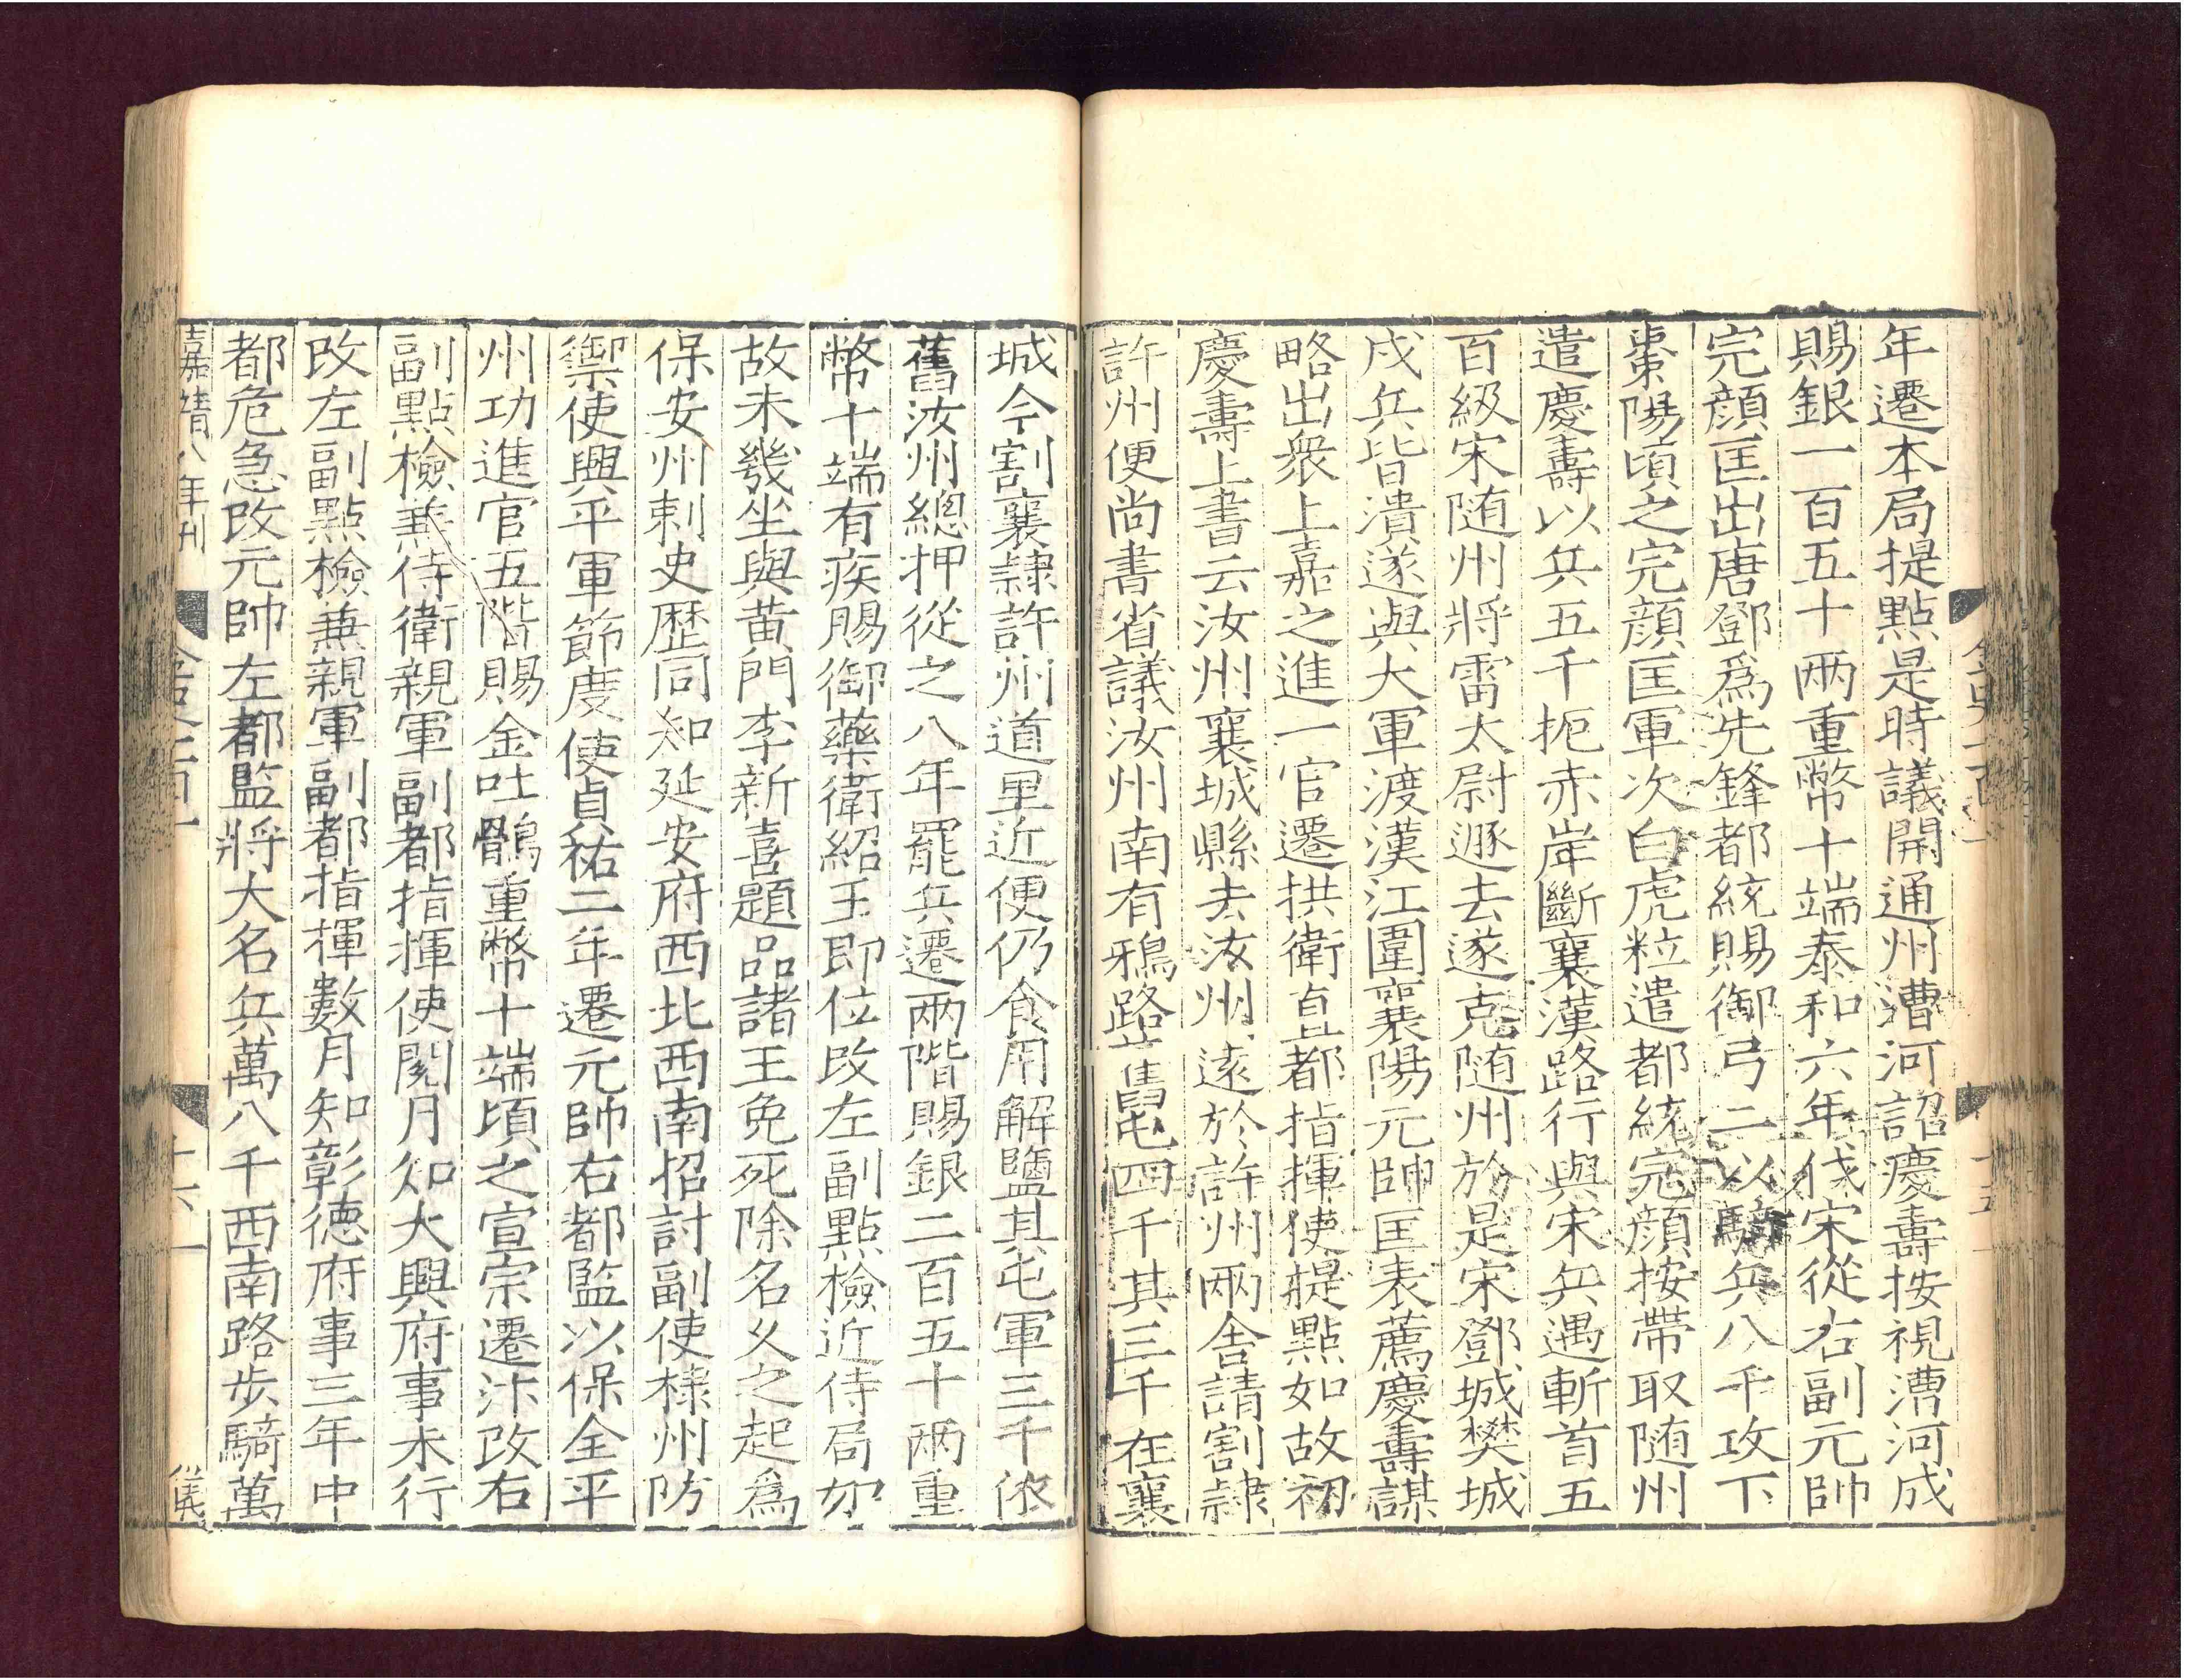 年遷本局提點是時議開通州漕河詔慶壽按視漕河成
賜銀一百五十兩重幣十端泰和六年伐宋從右副元帥
完顏匡出唐鄧爲先鋒都統賜御弓二以騎兵八千攻下
棗陽頃之完顏匡軍次白虎粒遣都統完顏按帶取随州
遣慶壽以兵五千扼赤岸斷襄漢路行與宋兵遇斬首五
百級宋随州將雷太尉遯去遂克随州於是宋鄧城樊城
戍兵皆潰遂與大軍渡漢江圍襄陽元帥匡表薦慶壽謀
略出衆上嘉之進一官遷拱衛直都指揮使提點如故初
慶壽上書云汝州襄城縣去汝州遠於許州兩舍請割隷
許州便尚書省議汝州南有鴉路舊屯四千其三千在襄
城今割襄隷許州道里近便仍食用解鹽其屯軍三千依
舊汝州總押從之八年罷兵遷兩階賜銀二百五十兩重
幣十端有疾賜御藥衛紹王即位改左副點檢近侍局如
故未幾坐與黃門李新喜題品諸王免死除名乆之起爲
保安州刺史歷同知延安府西北西南招討副使棣州防
禦使興平軍節度使貞祐二年遷元帥右都監以保全平
州功進官五階賜金吐鶻重幣十端頃之宣宗遷汴改右
副點檢兼侍衛親軍副都指揮使閱月知大興府事未行
改左副點檢兼親軍副都指揮數月知彰德府事三年中
都危急改元帥左都監將大名兵萬八千西南路步騎萬
嘉靖八年刊
金史一百一
十六
儀